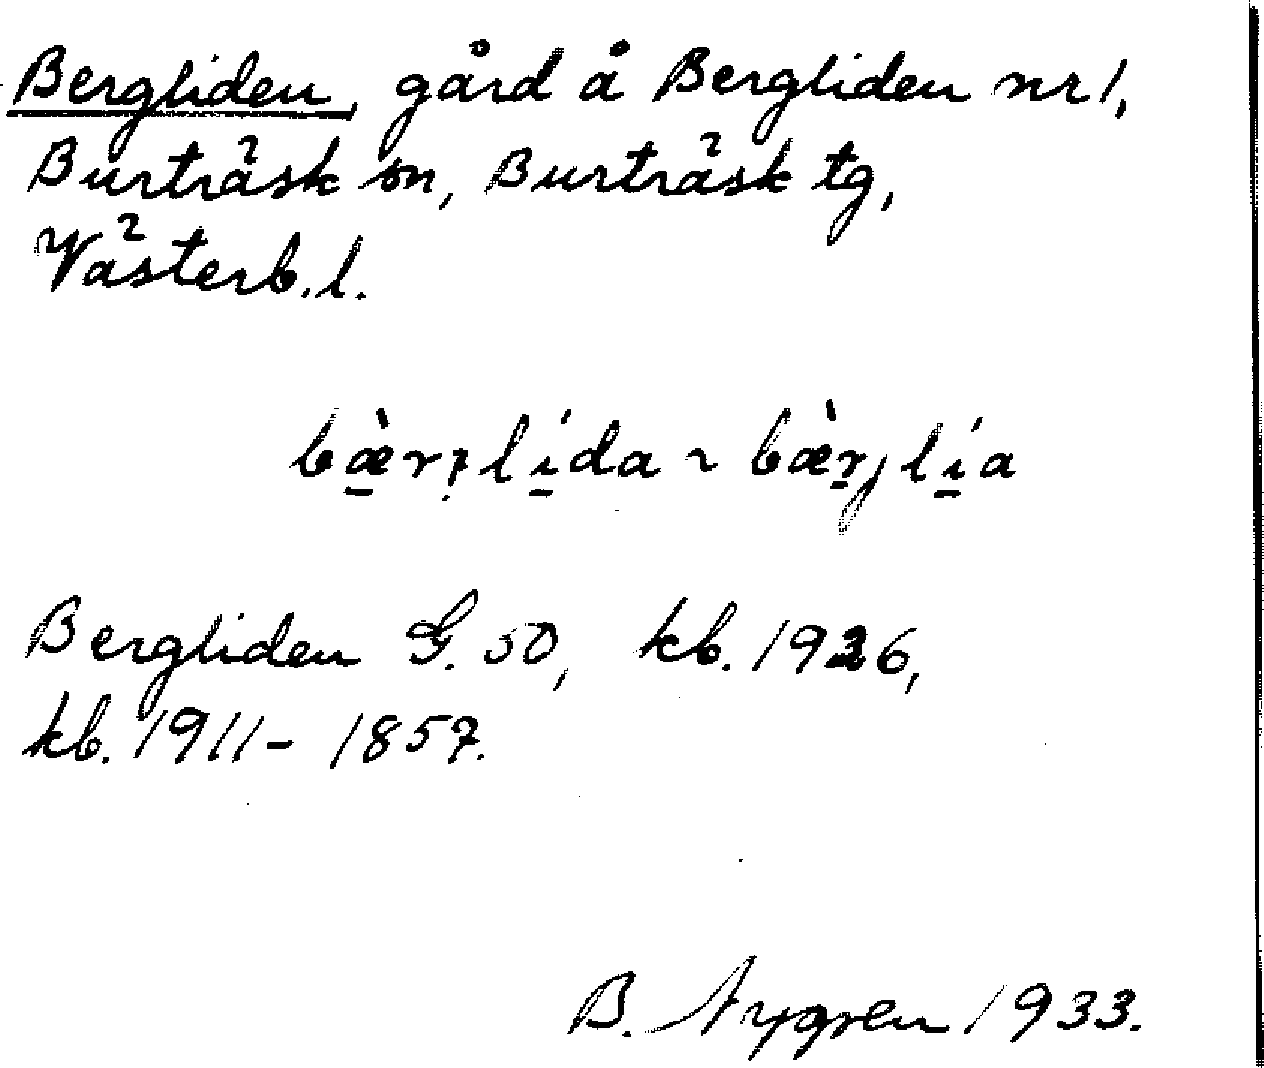 Bergliden, gård å Bergliden nr 1,
Burträsk sn, Burträsk tg,
Västerb. l.
bæ̀r lída ~ bæ̀rj lía
Bergliden G. 50, kb. 1926,
kb. 1911- 1857.
B. Nygren 1933.